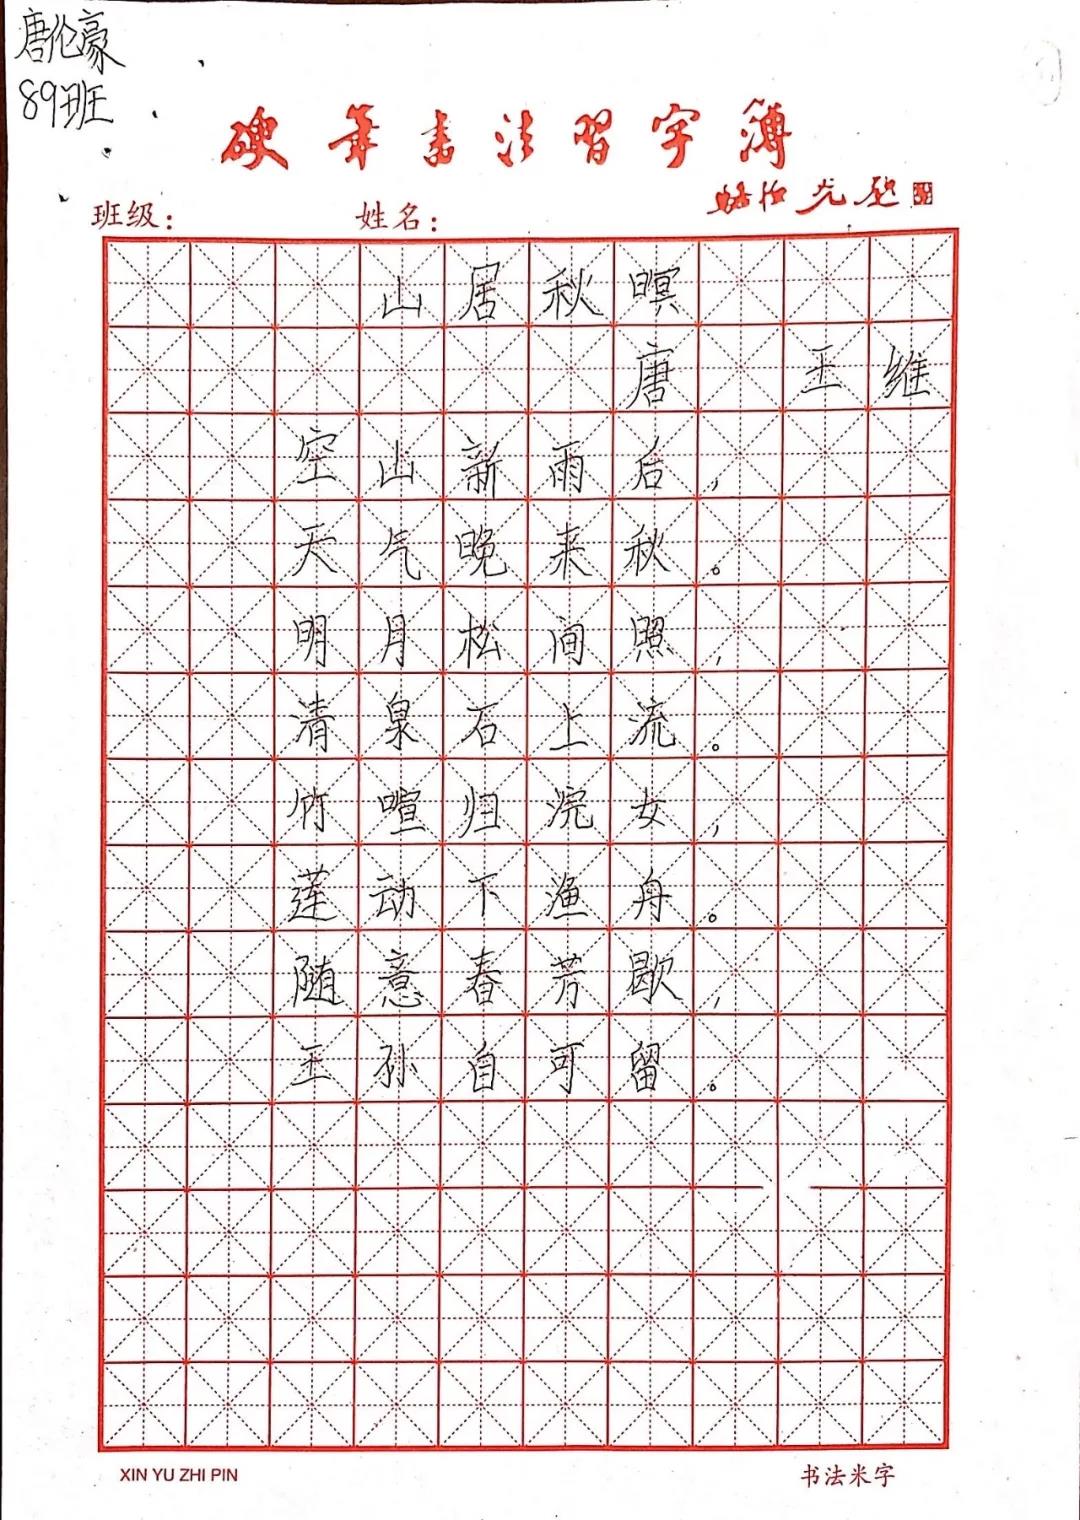 唐伦豪
89班
硬笔书法习字簿
班级：
姓名：
山居秋暝
唐 王维
空山新雨后，
天气晚来秋。
明月松间照，
清泉石上流。
竹喧归浣女，
莲动下渔舟。
随意春芳歇，
王孙自可留。
XIN YU ZHI PIN
书法米字